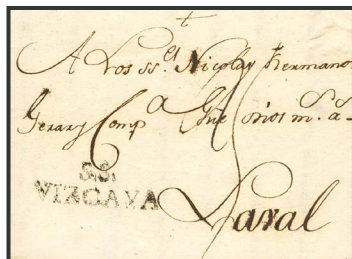 A Los ss.es Nicolas hermano
Gerar y Comp.a Que m.s a.s
S.S.
VIZCAYA
Laval